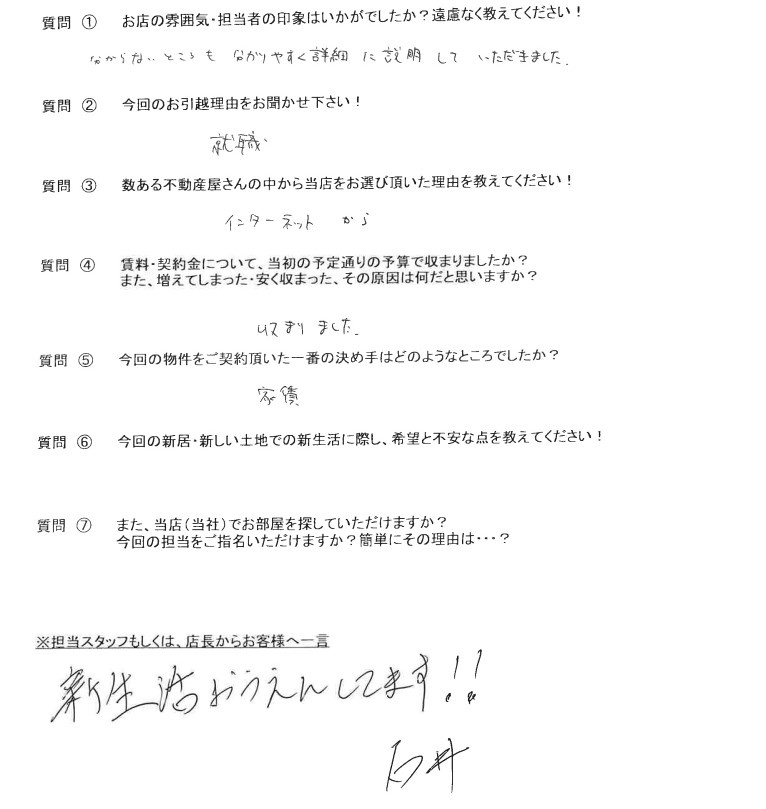 質問 ① お店の雰囲気・担当者の印象はいかがでしたか？遠慮なく教えてください！
分からないところも 分かりやすく詳細に説明していただきました.
質問 ② 今回のお引越理由をお聞かせ下さい！
就職
質問 ③ 数ある不動産屋さんの中から当店をお選び頂いた理由を教えてください！
インターネットから
質問 ④ 賃料・契約金について、当初の予定通りの予算で収まりましたか？
また、増えてしまった・安く収まった、その原因は何だと思いますか？
収まりました.
質問 ⑤ 今回の物件をご契約頂いた一番の決め手はどのようなところでしたか？
家賃
質問 ⑥ 今回の新居・新しい土地での新生活に際し、希望と不安な点を教えてください！
質問 ⑦ また、当店（当社）でお部屋を探していただけますか？
今回の担当をご指名いただけますか？簡単にその理由は・・・？
※担当スタッフもしくは、店長からお客様へ一言
新生活おうえんしてます!!
石井